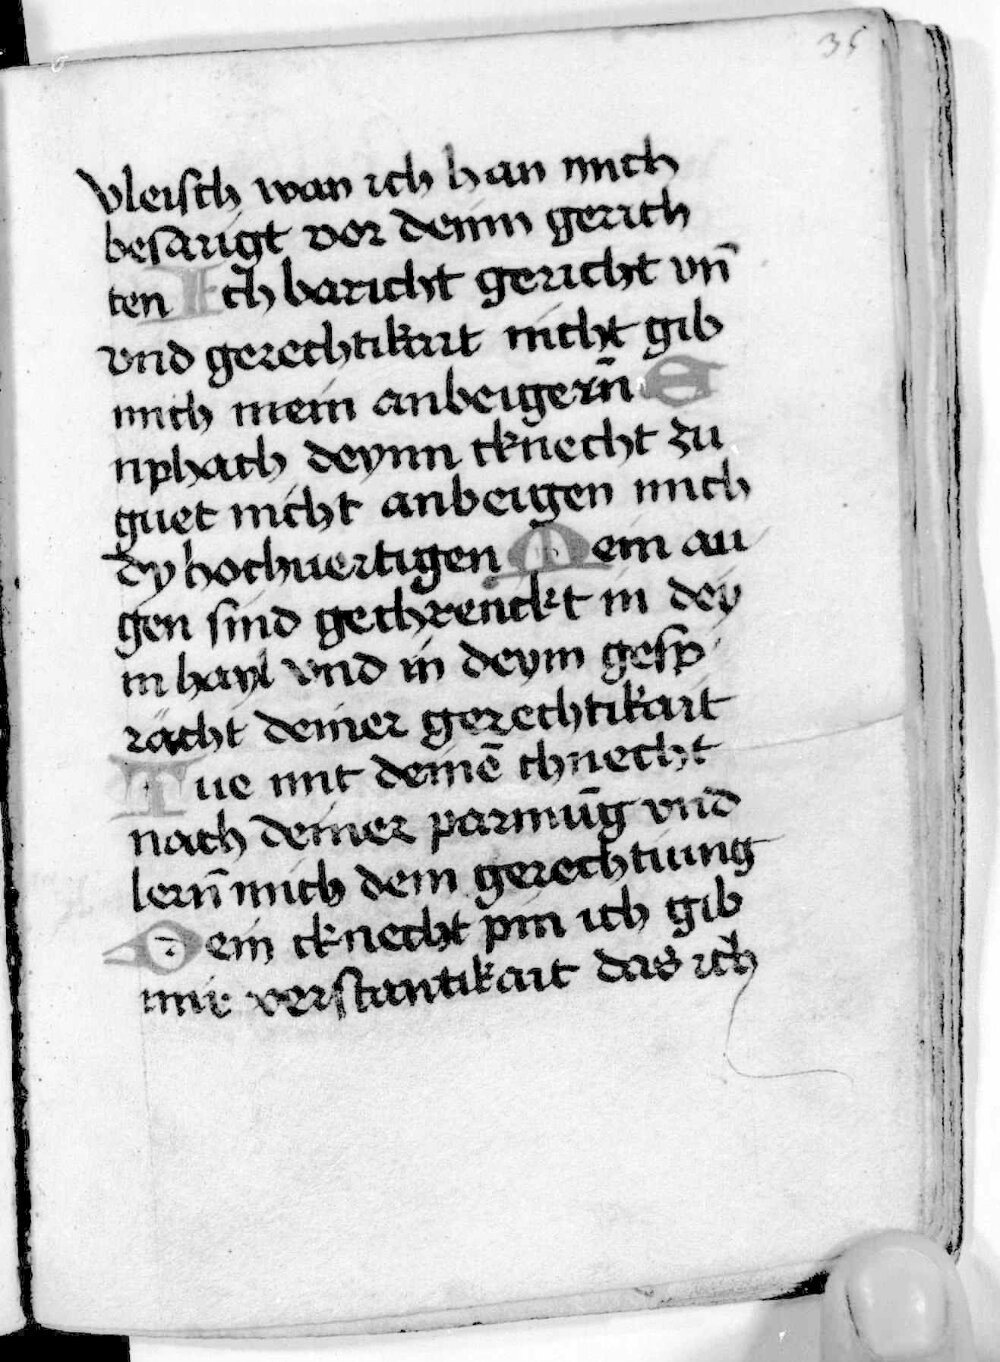 35
vleisch wan ich han mich
besargt vor deinn gerich
ten Ich baricht gericht vn̄
vnd gerechtikait nicht gib
mich mein anbeigern̄ E
nphach deynn cknecht zu
guet nicht anbeigen mich
dy hochuertigen Mein au
gen sind gechrenckt in dey
m hayl vnd in deym gesp
rächt deiner gerechtikait
Tue mit deinē chnecht
nach deiner parmūg vnd
lern̄ mich dein gerechtiung
Dein cknecht pin ich gib
mir verstantikait das ich